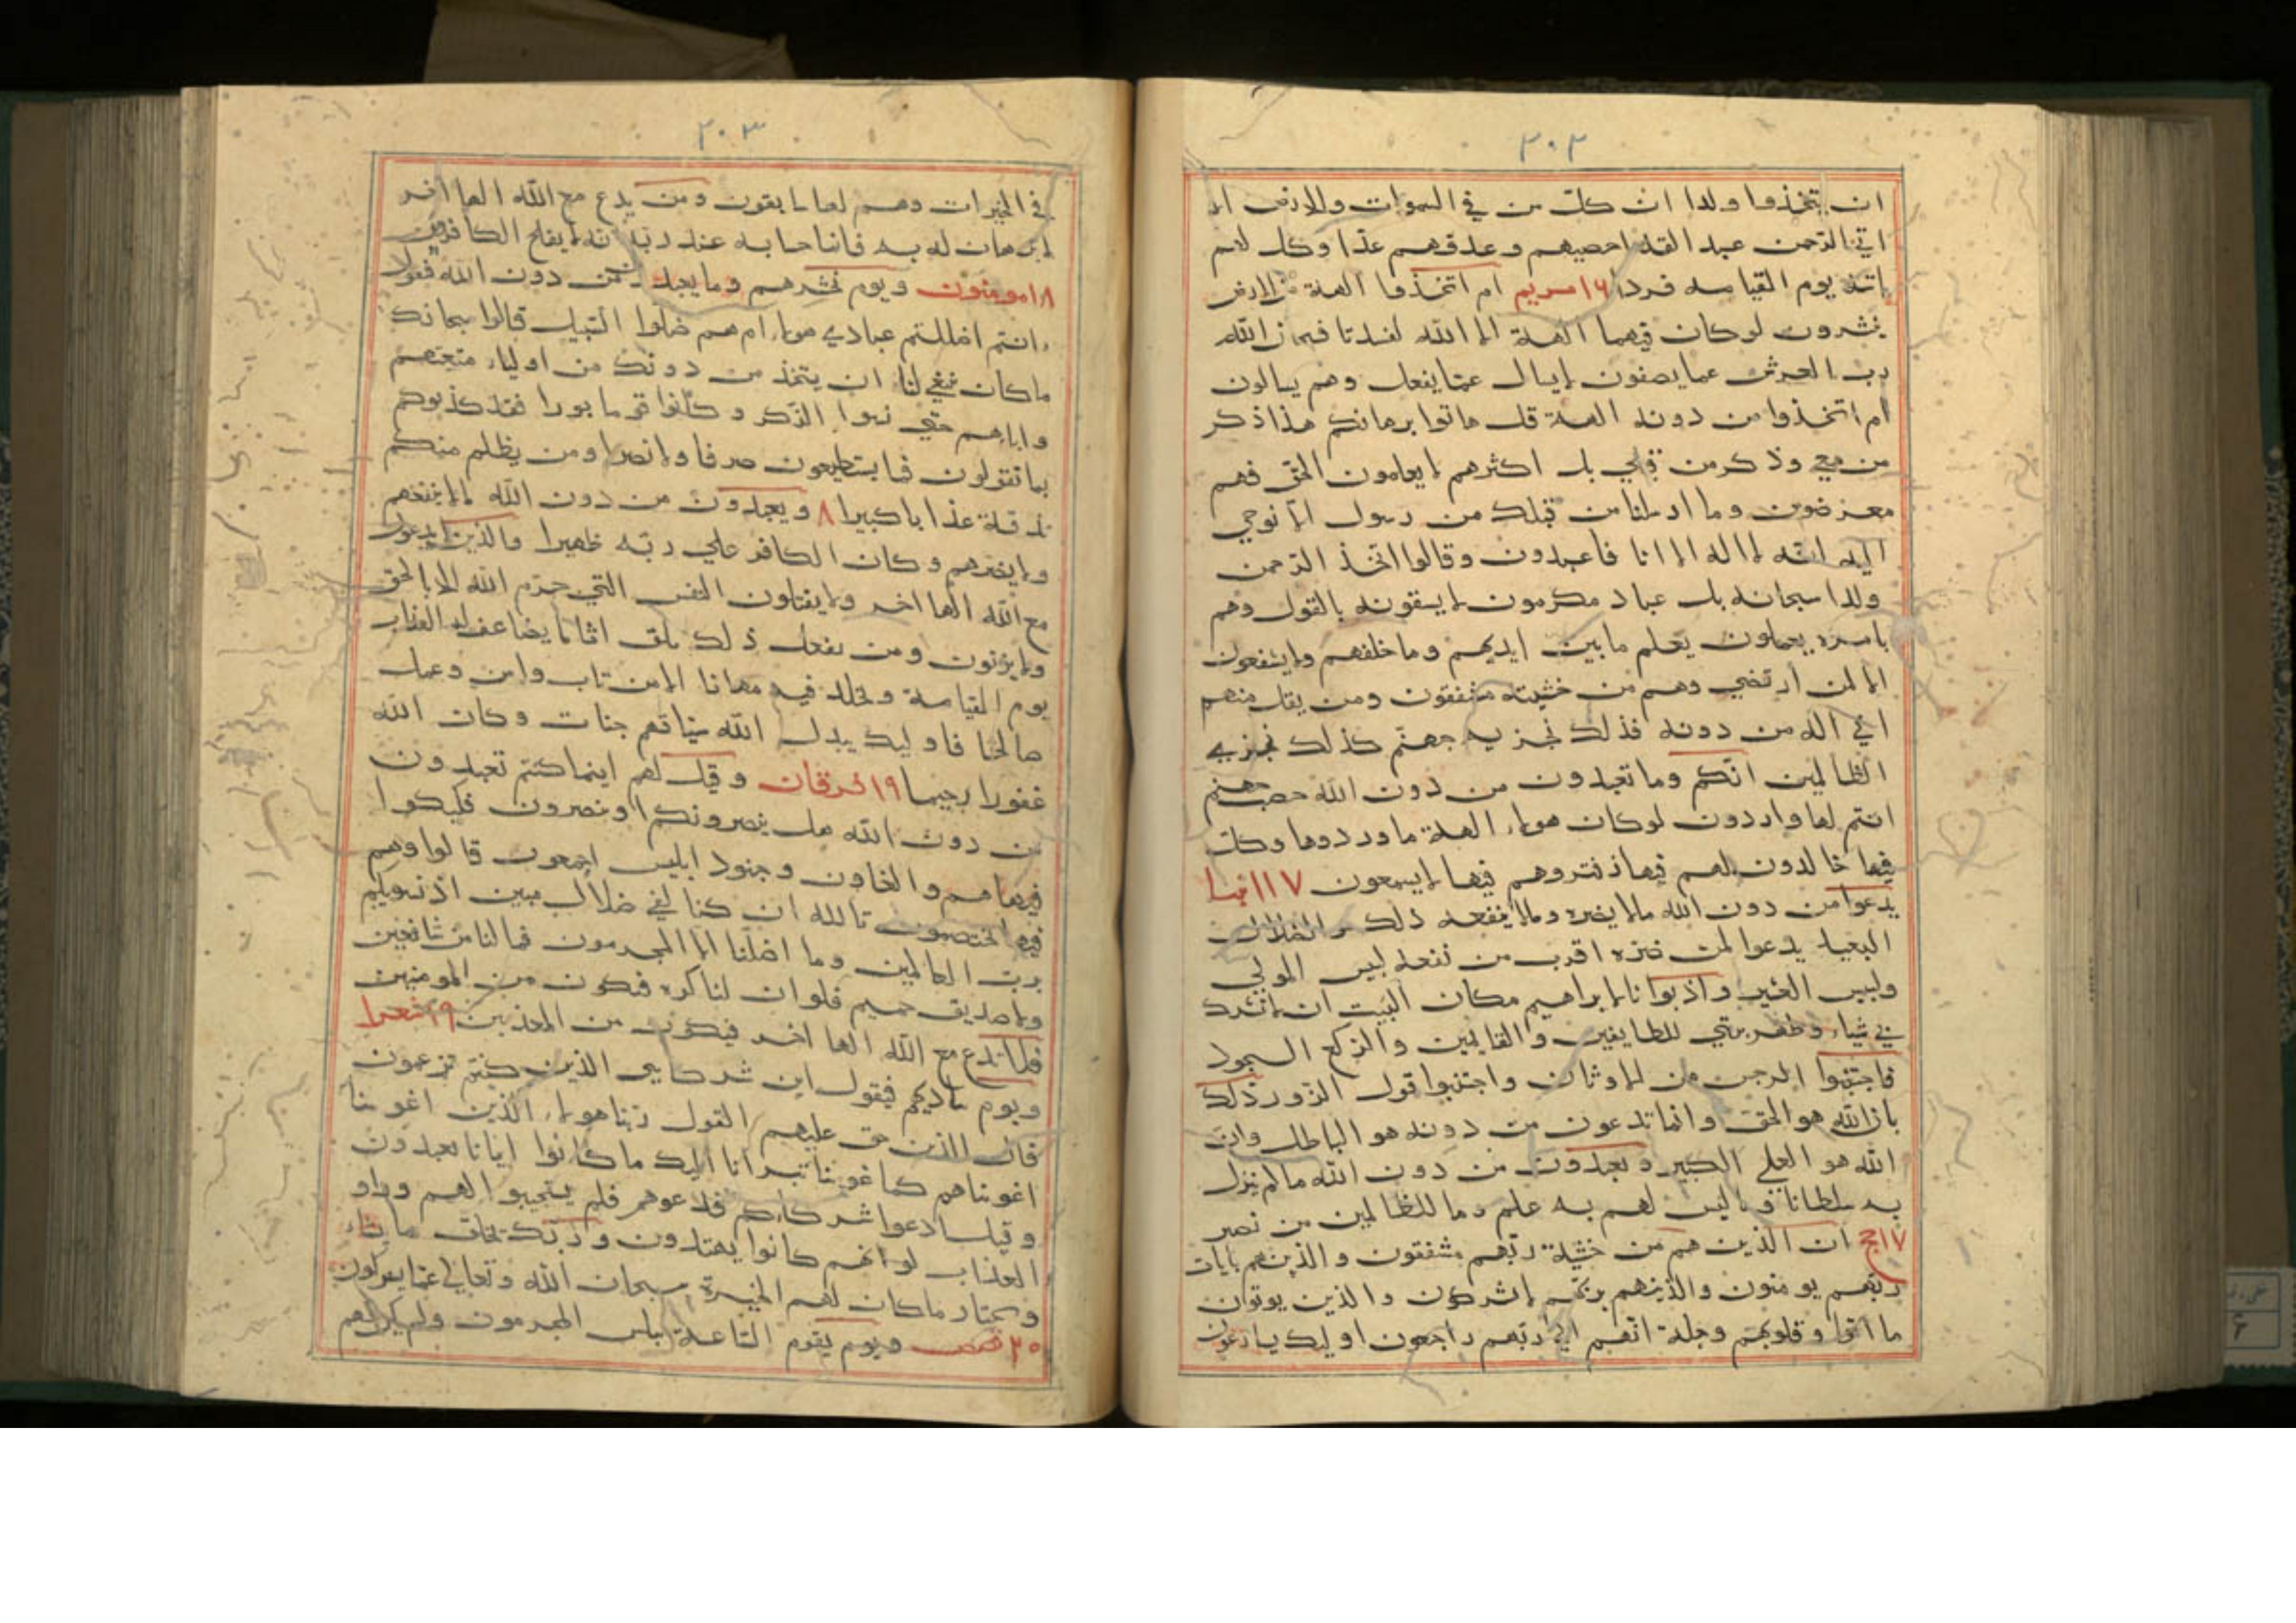 ٣٠٢
ان يتخذوا ولدا ان كل من في السموات والارض الا
اتي الرحمن عبدا لقد احصيهم وعدهم عدا وكل لهم
اته يوم القيامه فردا ١٦ مريم ام اتخذوا الهة من الارض
ينشرون لو كان فيهما الهة الا الله لفسدتا فسبحان الله
رب العرش عما يصفون لا يسال عما يفعل وهم يسالون
ام اتخذوا من دونه الهة قل هاتوا برهانكم هذا ذكر
من معي وذكر من قبلي بل اكثرهم لا يعلمون الحق فهم
معرضون وما ارسلنا من قبلك من رسول الا نوحي
اليه انه لا اله الا انا فاعبدون وقالوا اتخذ الرحمن
ولدا سبحانه بل عباد مكرمون لا يسبقونه بالقول وهم
بامره يعملون يعلم ما بين ايديهم وما خلفهم ولا يشفعون
الا لمن ارتضي وهم من خشيته مشفقون ومن يقل منهم
اني اله من دونه فذلك نجزيه جهنم كذلك نجزي
الظالمين انكم وما تعبدون من دون الله حصب جهنم
انتم لها واردون لو كان هولاء الهة ما وردوها وكل
فيها خالدون لهم فيها زفير وهم فيها لا يسمعون ١٧ انبيا
يدعوا من دون الله مالا يضره ومالا ينفعه ذلك هو الضلال
البعيد يدعوا لمن ضره اقرب من نفعه لبيس المولي
ولبيس العشير واذ بوانا لابراهيم مكان البيت ان لا تشرك
بي شياء وطهر بيتي للطايفين والقايمين والركع السجود
فاجتنبوا الرجس من الاوثان واجتنبوا قول الزور ذلك
بان الله هو الحق وانما تدعون من دونه هو الباطل وان
الله هو العلي الكبير و يعبدون من دون الله مالم ينزل
به سلطانا وما ليس لهم به علم وما للظالمين من نصير
١٧ حج ان الذين هم من خشية ربهم مشفقون والذين هم بايات
ربهم يومنون والذينهم بربهم لا يشركون والذين يوتون
ما اتوا وقلوبهم وجلة انهم الي ربهم راجعون اوليك يسارعون
٣٠٣
في الخيرات وهم لها سابقون ومن يدع مع الله الها اخر
لا برهان له به فانما حسابه عند ربه انه لا يفلح الكافرون
١٨ مومنون ويوم نحشرهم وما يعبدون من دون الله فيقول
ءانتم اضللتم عبادي هولاء ام هم ضلوا السبيل قالوا سبحانك
ما كان ينبغي لنا ان يتخذ من دونك من اولياء متعتهم
واباءهم حتي نسوا الذكر وكانوا قوما بورا فقد كذبوكم
بما تقولون فما يستطيعون صرفا ولا نصرا ومن يظلم منكم
نذقه عذابا كبيرا ٨ ويعبدون من دون الله مالا ينفعهم
ولا يضرهم وكان الكافر علي ربه ظهيرا والذين لا يدعون
مع الله الها اخر ولا يقتلون النفس التي حرم الله الا بالحق
ولا يزنون ومن يفعل ذلك يلق اثاما يضاعف له العذاب
يوم القيامة ويخلد فيه مهانا الا من تاب وامن وعمل
صالحا فاوليك يبدل الله سياتهم حسنات وكان الله
غفورا رحيما ١٩ فرقان وقيل لهم اينما كنتم تعبدون
من دون الله هل ينصرونكم او ينصرون فكبكبوا
فيها هم والغاون وجنود ابليس اجمعون قالوا وهم
فيها يختصمون تالله ان كنا لفي ضلال مبين اذ نسويكم
برب العالمين وما اضلنا الا المجرمون فما لنا من شافعين
ولا صديق حميم فلو ان لنا كره فنكون من المومنين
فلا تدع مع الله الها اخر فتكون من المعذبين ١٩ شعرا
ويوم يناديهم فيقول اين شركايي الذين كنتم تزعمون
قال الذين حق عليهم القول ربنا هولاء الذين اغوينا
اغويناهم كما غوينا تبرانا اليك ما كانوا ايانا يعبدون
وقيل ادعوا شركاءكم فدعوهم فلم يستجيبوا لهم وراو
العذاب لو انهم كانوا يهتدون وربك يخلق ما يشاء
ويختار ما كان لهم الخيرة سبحان الله وتعالي عما يشركون
٢٠ قصص ويوم يقوم الساعة يبلس المجرمون ولم يكن لهم